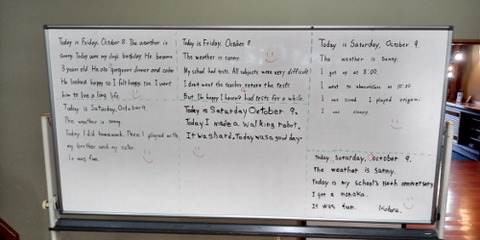 Today is Friday, October 8. The weather is
sunny. Today was my dog's birthday. He became
3 years old. He ate dinner and cake.
He looked happy so I felt happy too. I want
him to live a long life.
Today is Saturday, October 9.
The weather is sunny.
Today I did homework. Then I played with
my brother and my sister.
It was fun.
Today is Friday, October 8.
The weather is sunny.
My school had tests. All subjects were very difficult
I don't want the teacher return the tests
But I'm happy I haven't had tests for a while.
Today is Saturday October 9.
Today I made a walking robot.
It was hard. Today was a good day.
Today is Saturday, October 9.
The weather is sunny.
I got up at 8:00.
I went to at 10:30
I was tired. I played origami.
I was sleepy.
Today, Saturday, October 9.
The weather is sunny.
Today is my school's anniversary.
I got a
It was fun.